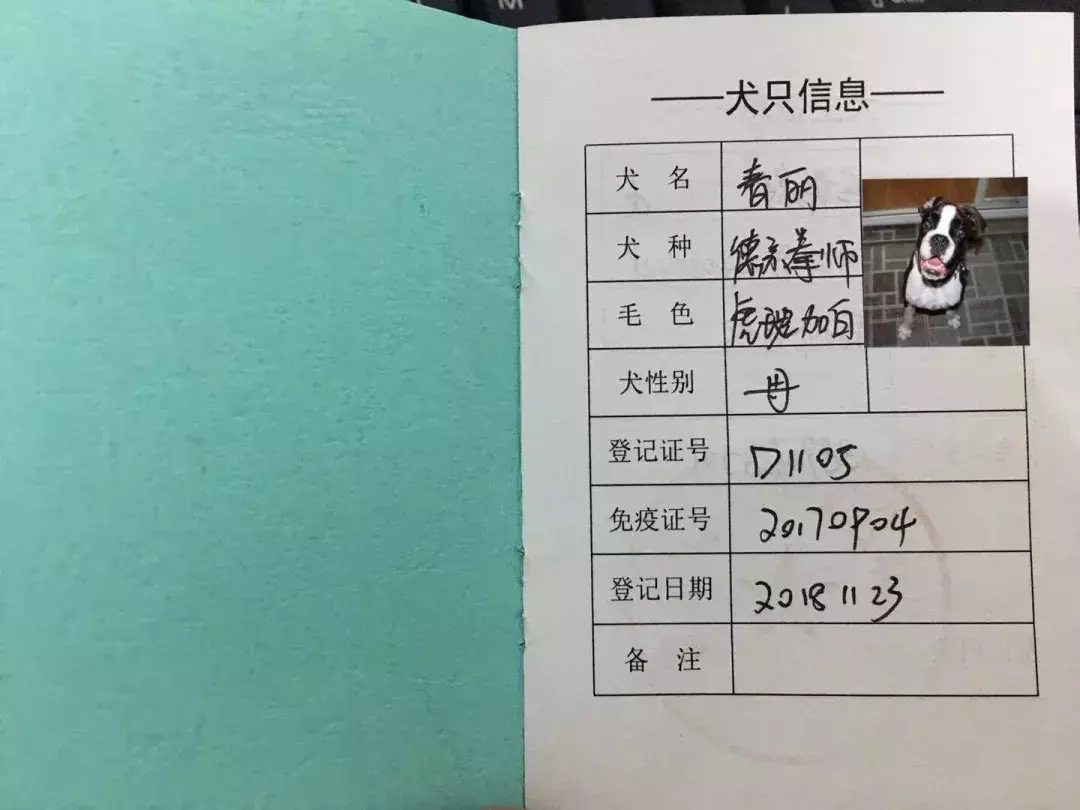 ——犬只信息——
犬名 春丽
犬种 德系拳师
毛色 虎斑加白
犬性别 母
登记证号 D1105
免疫证号 20170904
登记日期 2018 11 23
备注